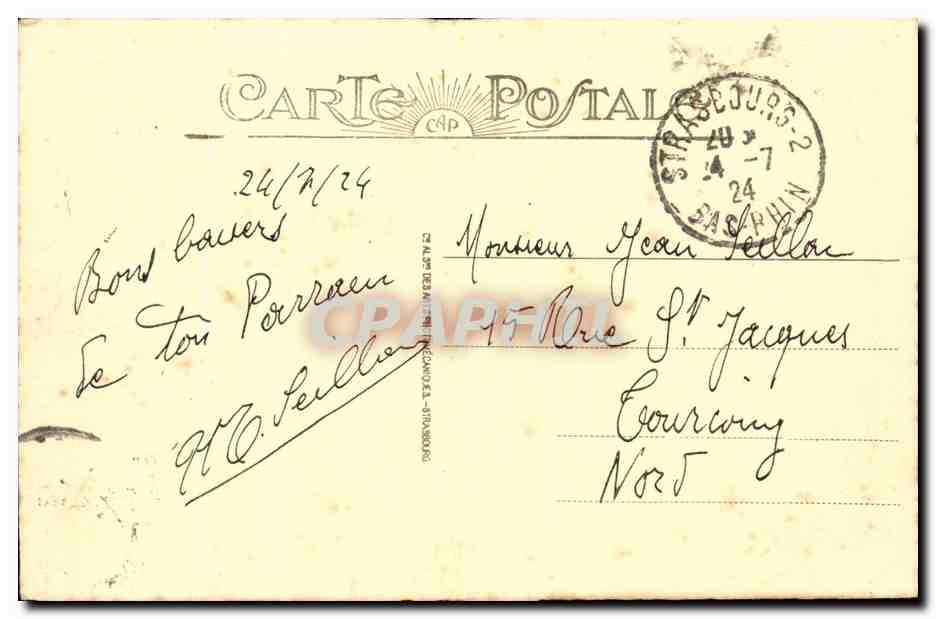 CARTE POSTALE
CAP
STRASBOURG-2
20
24 -7
24
BAS-RHIN
24/7/24
Bons baisers
de ton Parrain
Seillan
Cie ALSne DES ARTS PHOTOMÉCANIQUES.-STRASBOURG
CPAPHIL
Monsieur Jean Seillan
15 Rue St Jacques
Tourcoing
Nord